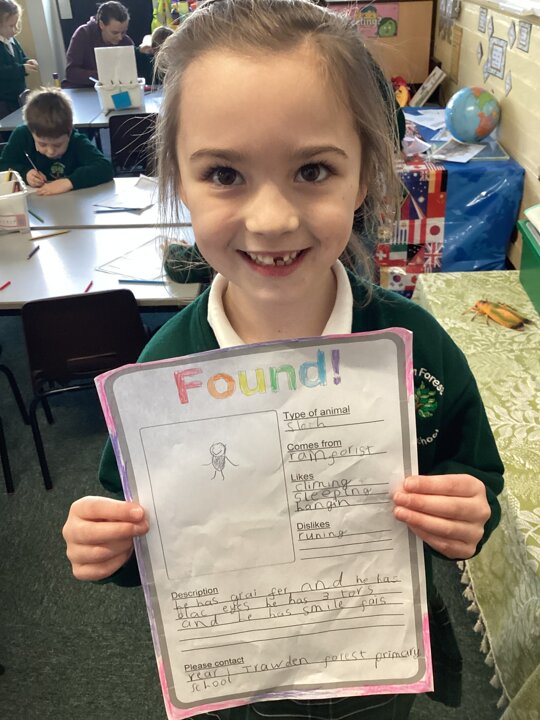 Found!
Type of animal
sloth
Comes from
ramforist
Likes
climing
sleeping
hangin
Dislikes
runing
Description
he has grai fer and he has
blac eyes he has 3 tors
and he has smile fais
Please contact
rear Trawden forest primary
school
Forest
School